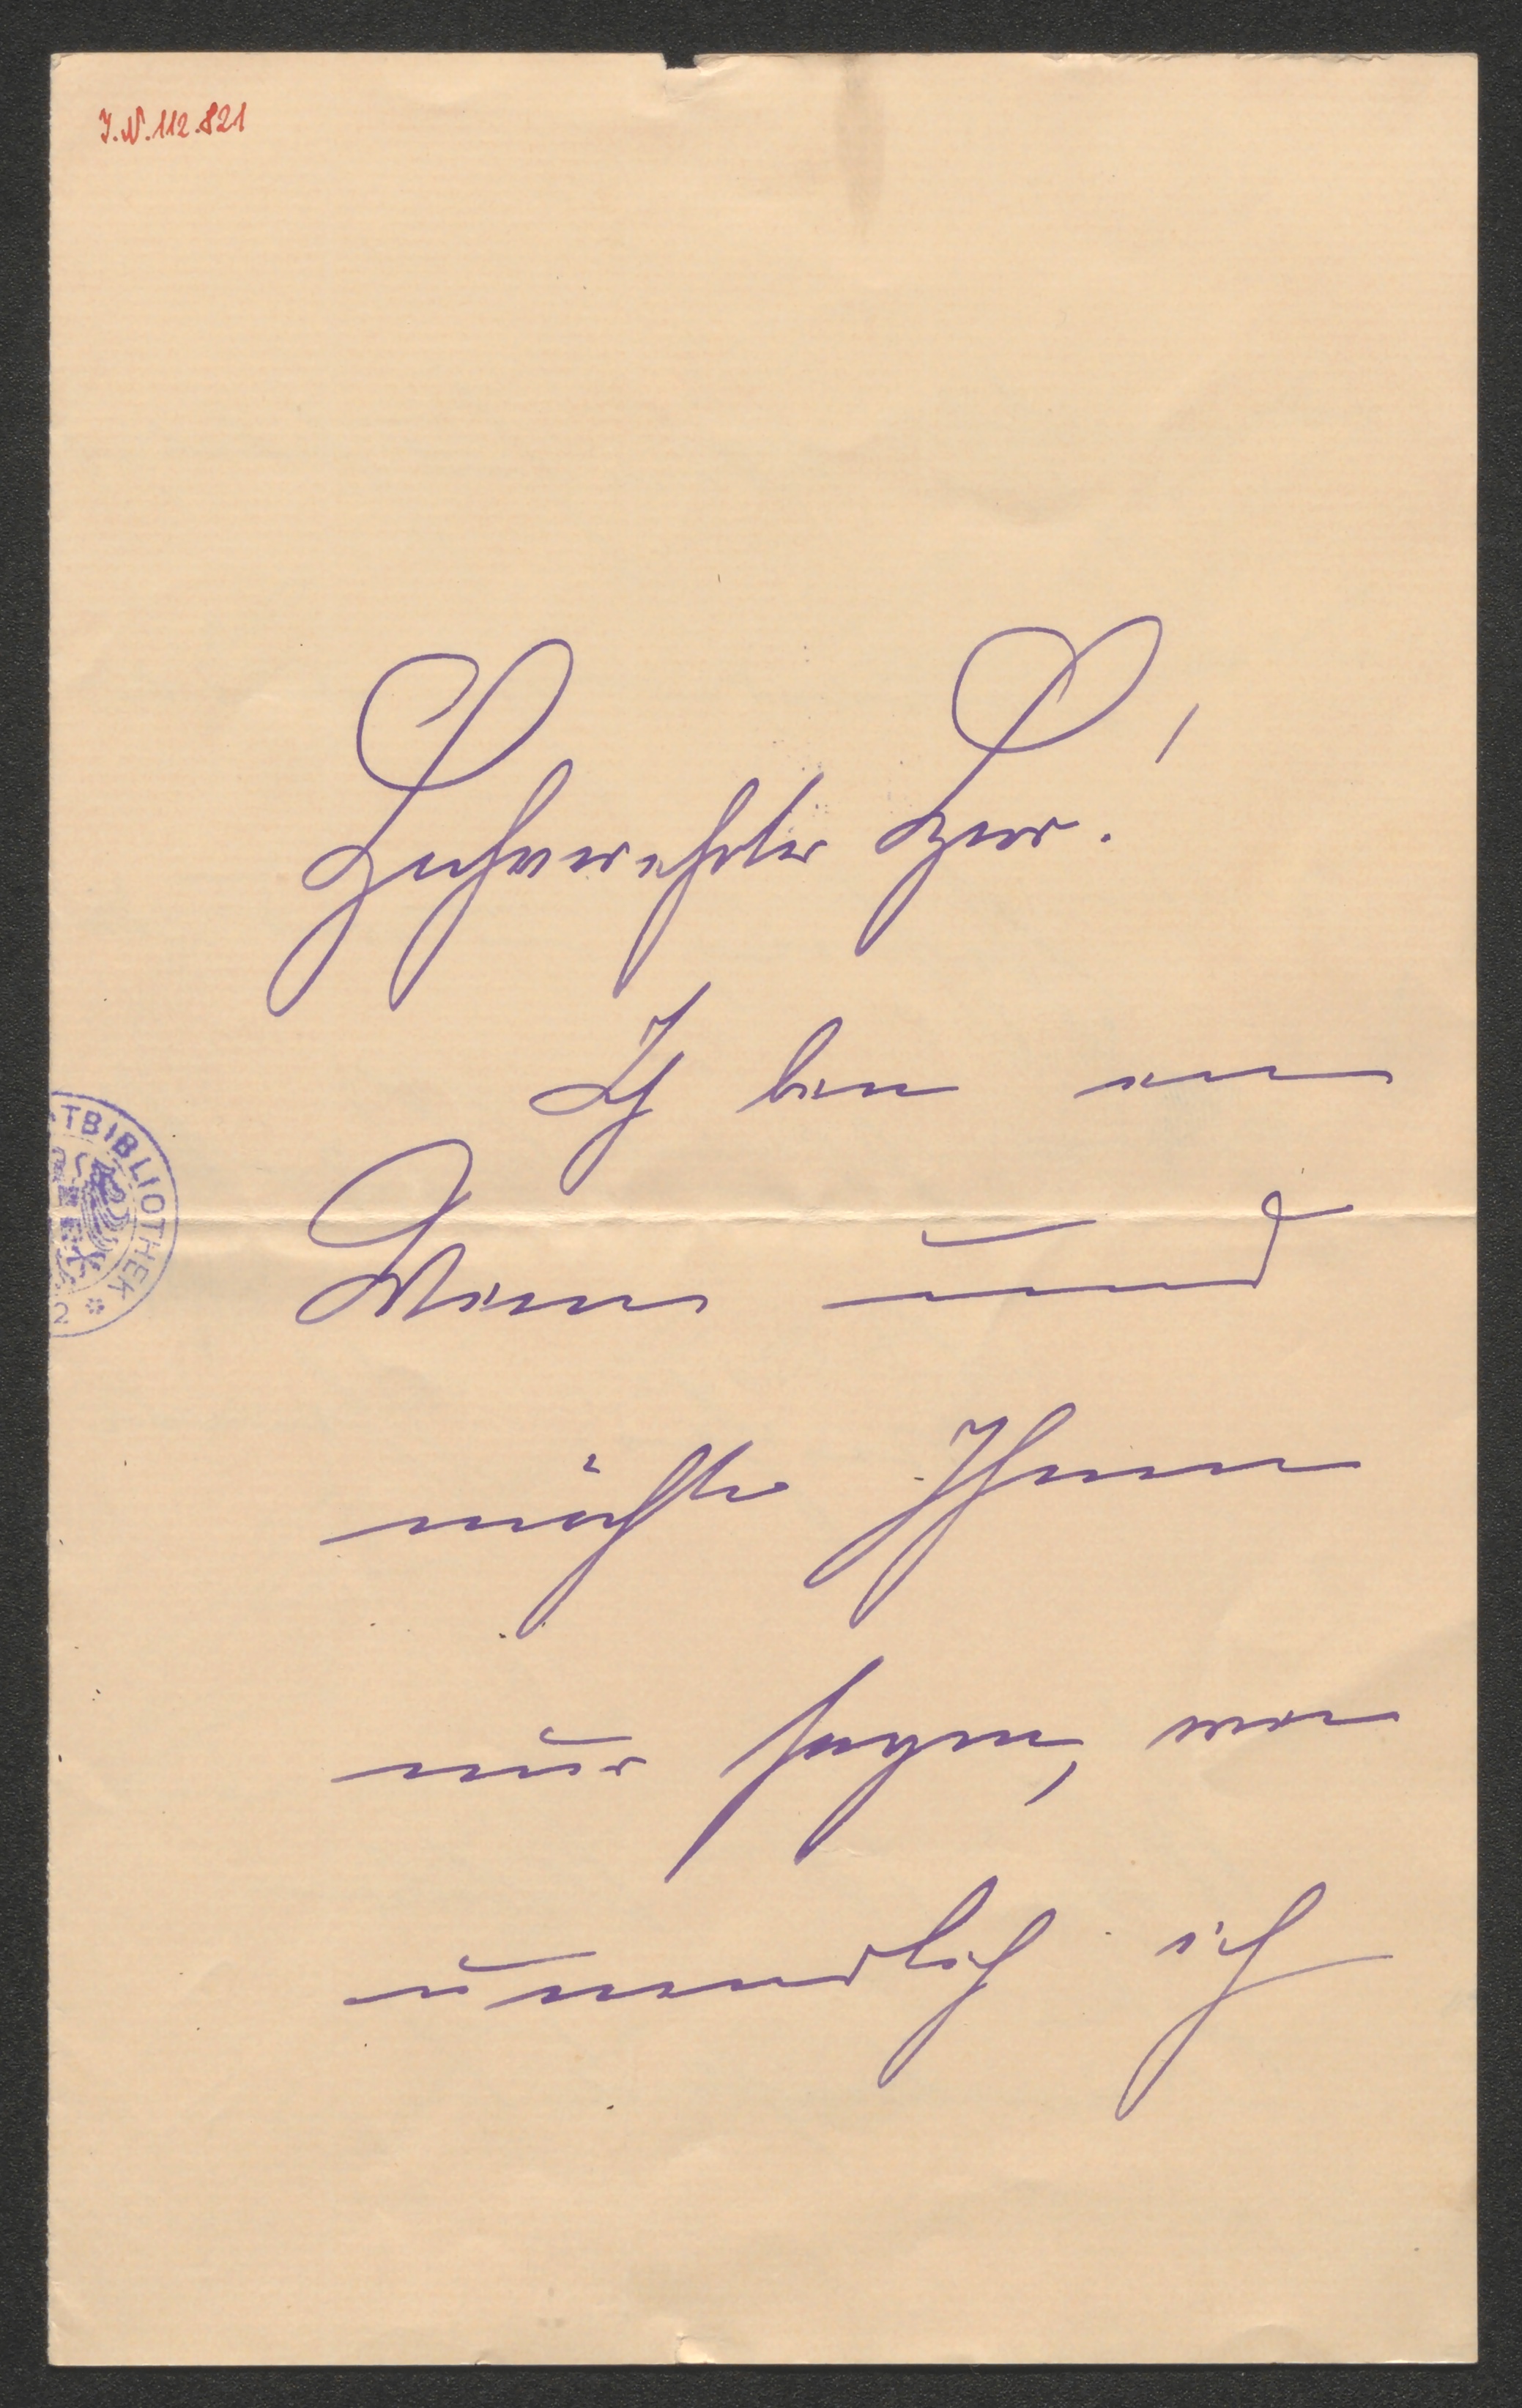 J.N. 112.821
Hochverehrter Herr!
Ich bin in
Wien und
möchte Ihnen
nur sagen, wie
unendlich ich
TBIBLIOTHEK